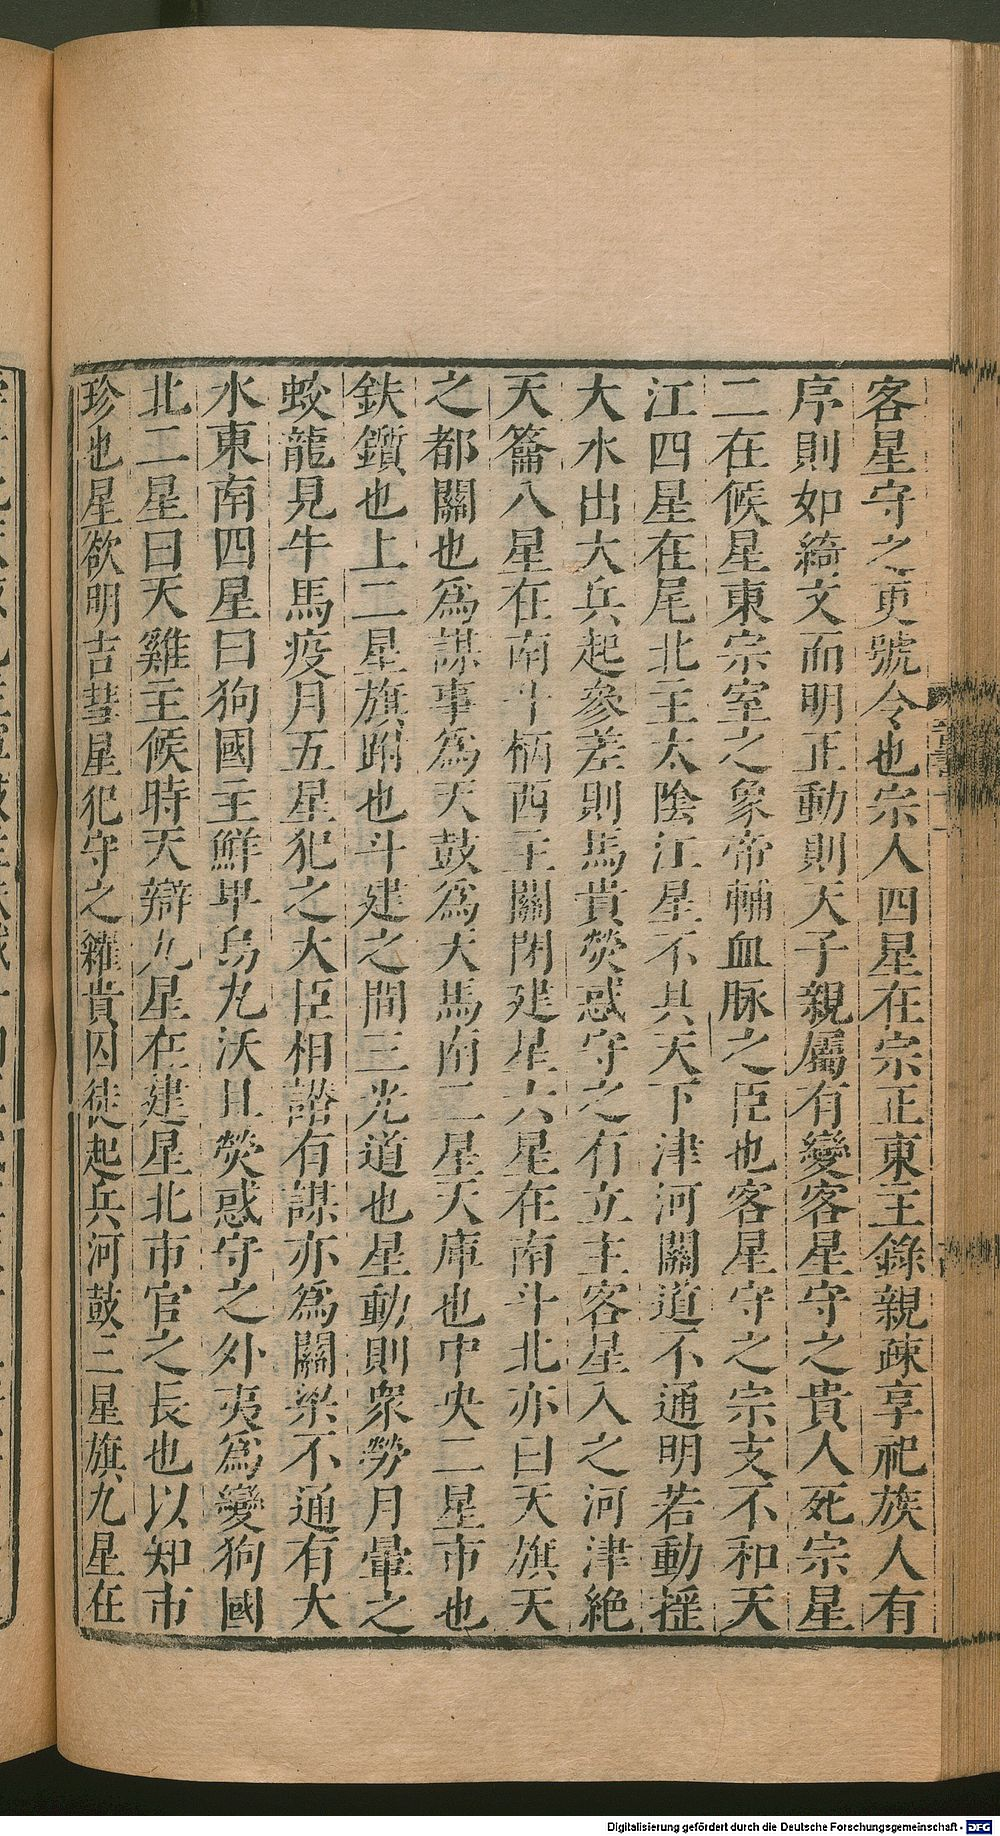 客星守之更號令也宗人四星在宗正東主錄親疎享祀族人有
序則如綺文而明正動則天子親屬有變客星守之貴人死宗星
二在候星東宗室之象帝輔血脉之臣也客星守之宗支不和天
江四星在尾北主太陰江星不具天下津河關道不通明若動搖
大水出大兵起參差則馬貴熒惑守之有立主客星入之河津絶
天籥八星在南斗柄西主關閉建星六星在南斗北亦曰天旗天
之都關也爲謀事爲天鼓爲天馬南二星天庫也中央二星市也
鈇鑕也上二星旗跗也斗建之間三光道也星動則衆勞月暈之
蛟龍見牛馬疫月五星犯之大臣相譖有謀亦爲關梁不通有大
水東南四星曰狗國主鮮卑烏丸沃且熒惑守之外夷爲變狗國
北二星曰天雞主候時天辯九星在建星北市官之長也以知市
珍也星欲明吉彗星犯守之糴貴囚徒起兵河鼓三星旗九星在
Digitalisierung gefördert durch die Deutsche Forschungsgemeinschaft - DFG